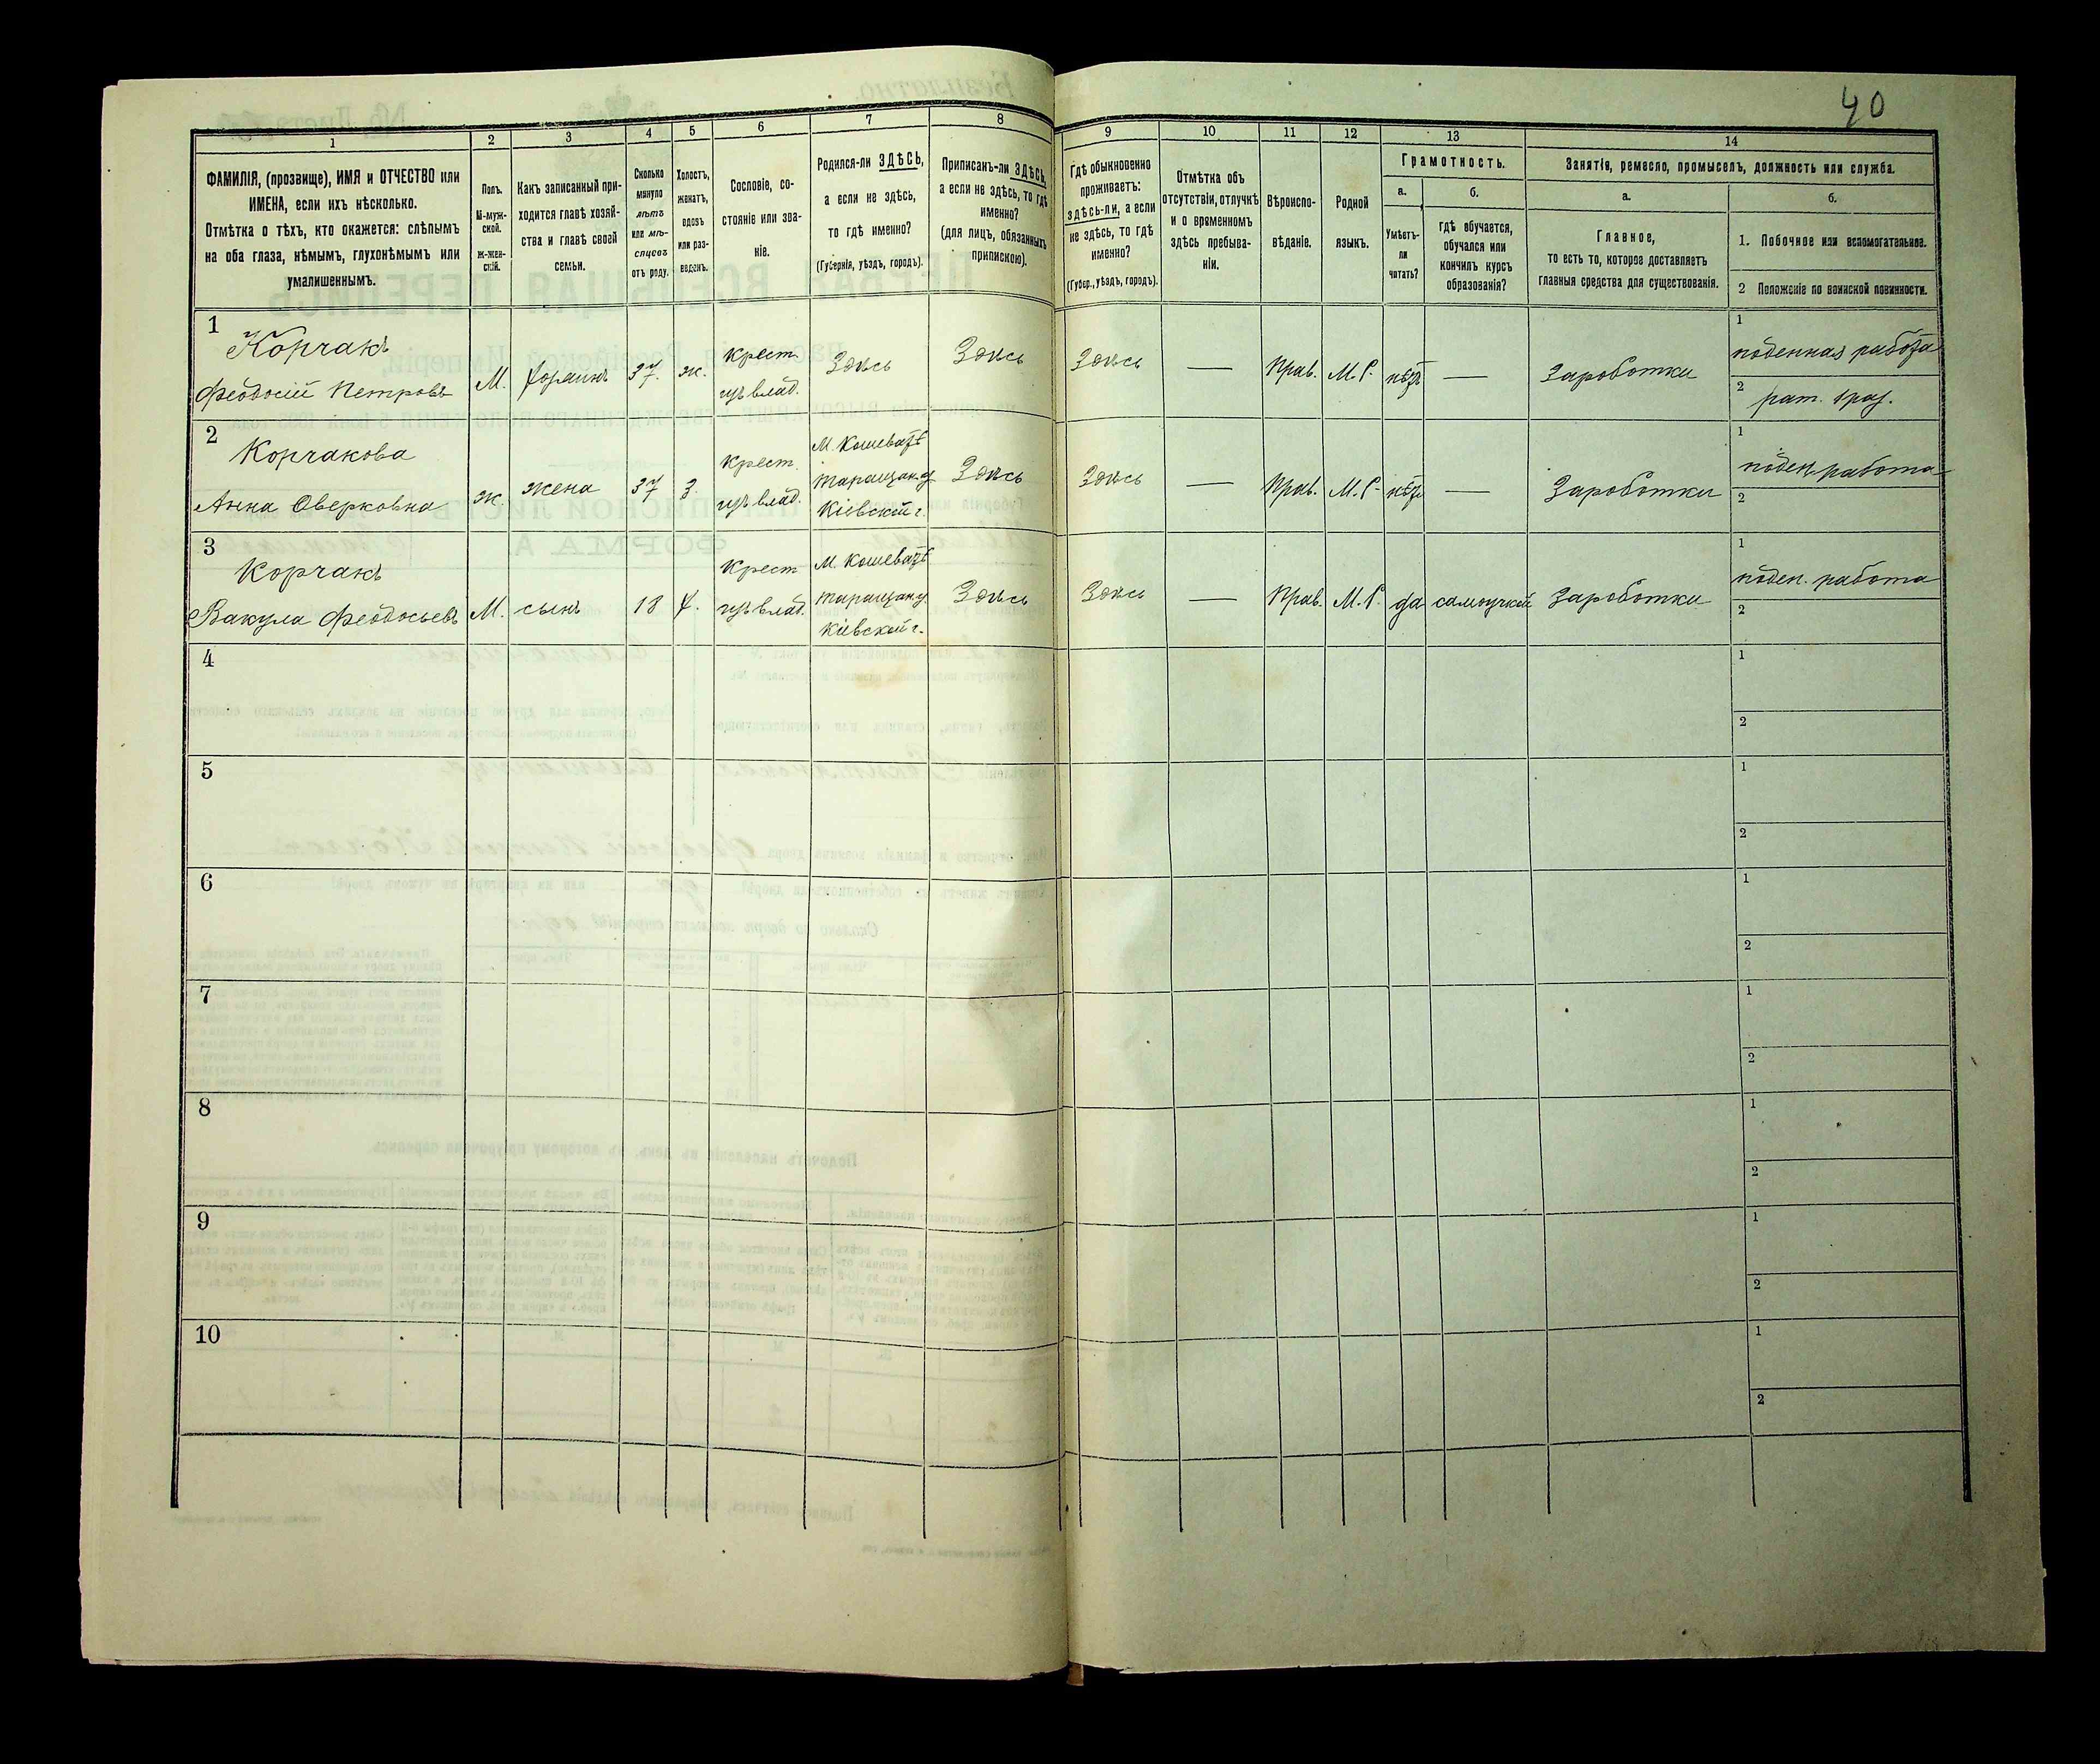 40
1
2
3
4
5
6
7
8
9
10
11
12
13
14
ФАМИЛІЯ, (прозвище), ИМЯ и ОТЧЕСТВО или
ИМЕНА, если ихъ нѣсколько.
Отмѣтка о тѣхъ, кто окажется: слѣпымъ
на оба глаза, нѣмымъ, глухонѣмымъ или
умалишеннымъ.
Полъ.
М-муж-
ской.
ж-жен-
скій.
Какъ записанный при-
ходится главѣ хозяй-
ства и главѣ своей
семьи.
Сколько
минуло
лѣтъ
или мѣ-
сяцевъ
отъ роду.
Холостъ,
женатъ,
вдовъ
или раз-
веденъ.
Сословіе, со-
стояніе или зва-
ніе.
Родился-ли ЗДѢСЬ,
а если не здѣсь,
то гдѣ именно?
(Губернія, уѣздъ, городъ).
Приписанъ-ли ЗДѢСЬ,
а если не здѣсь, то гдѣ
именно?
(для лицъ, обязанныхъ
припискою).
Гдѣ обыкновенно
проживаетъ:
здѣсь-ли, а если
не здѣсь, то гдѣ
именно?
(Губер., уѣздъ, городъ).
Отмѣтка объ
отсутствіи, отлучкѣ
и о временномъ
здѣсь пребыва-
ніи.
Вѣроиспо-
вѣданіе.
Родной
языкъ.
Грамотность.
а.
б.
Умѣетъ-
ли
читать?
гдѣ обучается,
обучался или
кончилъ курсъ
образованія?
Занятія, ремесло, промыселъ, должность или служба.
а.
б.
Главное,
то есть то, которое доставляетъ
главныя средства для существованія.
1. Побочное или вспомогательное.
2 Положеніе по воинской повинности.
1
Корчакъ
Феодосій Петровъ
М.
37.
ж.
Крест.
изъ влад.
Здѣсь
Здѣсь
Здѣсь
—
Прав.
М. Р.
нѣтъ
—
Зароботки
1
поденная работа
2
рат. 1 раз.
2
Корчакова
Анна Оверковна
ж.
жена
37
З.
Крест.
изъ влад.
М. Кошеватѣ
таращан. у.
Кіевской г.
Здѣсь
Здѣсь
—
Прав.
М. Р.
нѣтъ
—
Зароботки
1
поден. работа
2
3
Корчакъ
Вакула Феодосьевъ
М.
сынъ
18
Х.
Крест
изъ влад.
М. Кошеватѣ
таращан. у.
Кіевской г.
Здѣсь
Здѣсь
—
Прав.
М. Р.
да
самоучкой
Зароботки
1
поден. работа
2
4
1
2
5
1
2
6
1
2
7
1
2
8
1
2
9
1
2
10
1
2